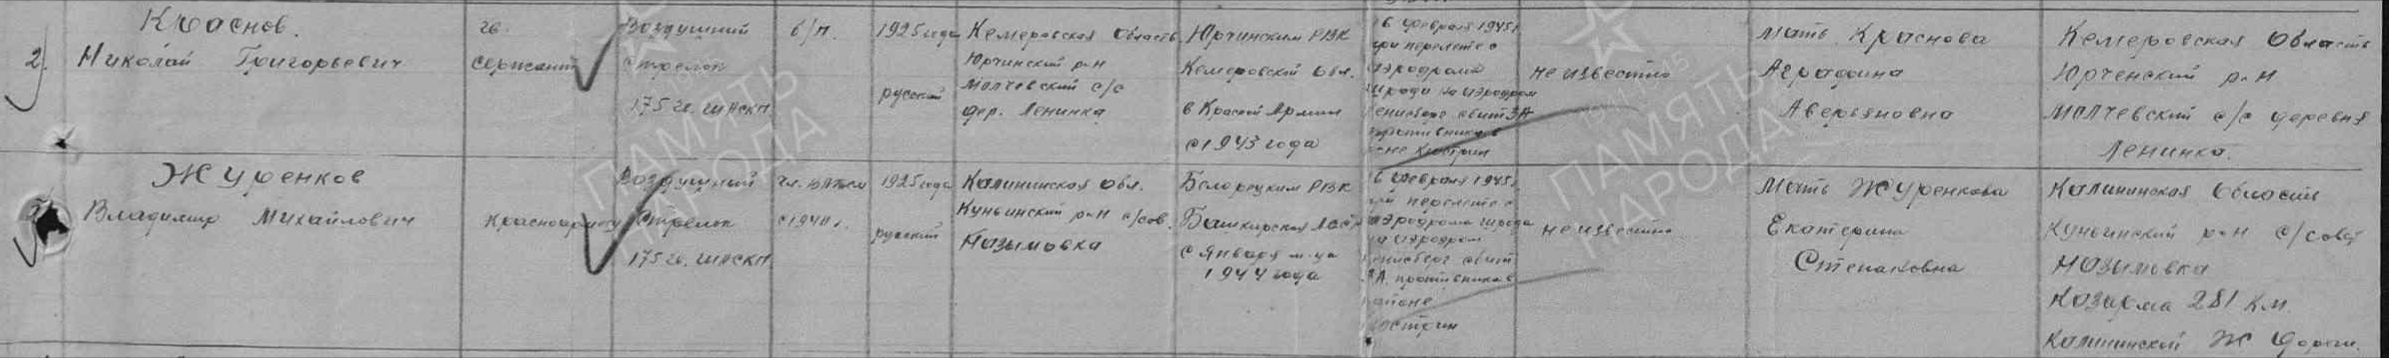 2.
Краснов.
Николай Григорьевич
гв.
сержант
Воздушный
стрелок
175 гв. ШАСКП
б/п.
1925 года
русский
Кемеровская область
Юрчинский р-н
Молчевский с/с
дер. Ленинка
Юрчинским РВК
Кемеровской обл.
в Красной Армии
с 1943 года
6 февраля 1945 г.
при перелете с
аэродрома
на аэродром
сбит ЗА
противника в
Кюстрин
неизвестно
Мать Краснова
Аграфина
Аверьяновна
Кемеровская область
Юрченский р-н
Молчевский с/с деревня
Ленинка.
3
Журенков
Владимир Михайлович
Красноармеец
Воздушный
стрелок
175 гв. ШАСКП
чл. ВЛКСМ
с 1940 г.
1925 года
русский
Калининская обл.
Куньинский р-н с/сов.
Назимовка
Белорецким РВК
Башкирская АССР
с января м-ца
1944 года
6 февраля 1945 г.
при перелете с
аэродрома
на аэродром
сбит
ЗА противника в
районе
Кюстрин
неизвестно
Мать Журенкова
Екатерина
Степановна
Калининская область
Куньинский р-н с/сов
Назимовка
Казарма 281 км.
Калининской ж дороги.
ПАМЯТЬ
НАРОДА
ПАМЯТЬ
НАРОДА